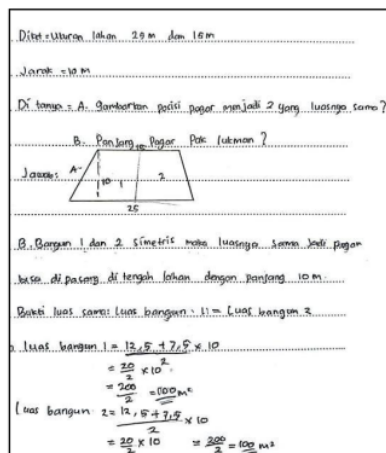 Diket = Ukuran lahan 25 m dan 15 m
Jarak = 10 m
Di tanya = A. gambarkan posisi pagar menjadi 2 yang luasnya sama?
B. Panjang Pagar Pak lukman?
Jawab: A.
15
10 1 2
25
B. Bangun 1 dan 2 simetris maka luasnya sama jadi pagar
bisa di pasang di tengah lahan dengan panjang 10 m.
Bukti luas sama: Luas bangun 1 = Luas bangun 2
luas bangun 1 = 12,5 + 7,5 / 2 × 10
= 20/2 × 10
= 200/2 = 100 m²
Luas bangun 2 = 12,5 + 7,5 / 2 × 10
= 20/2 × 10 = 200/2 = 100 m²